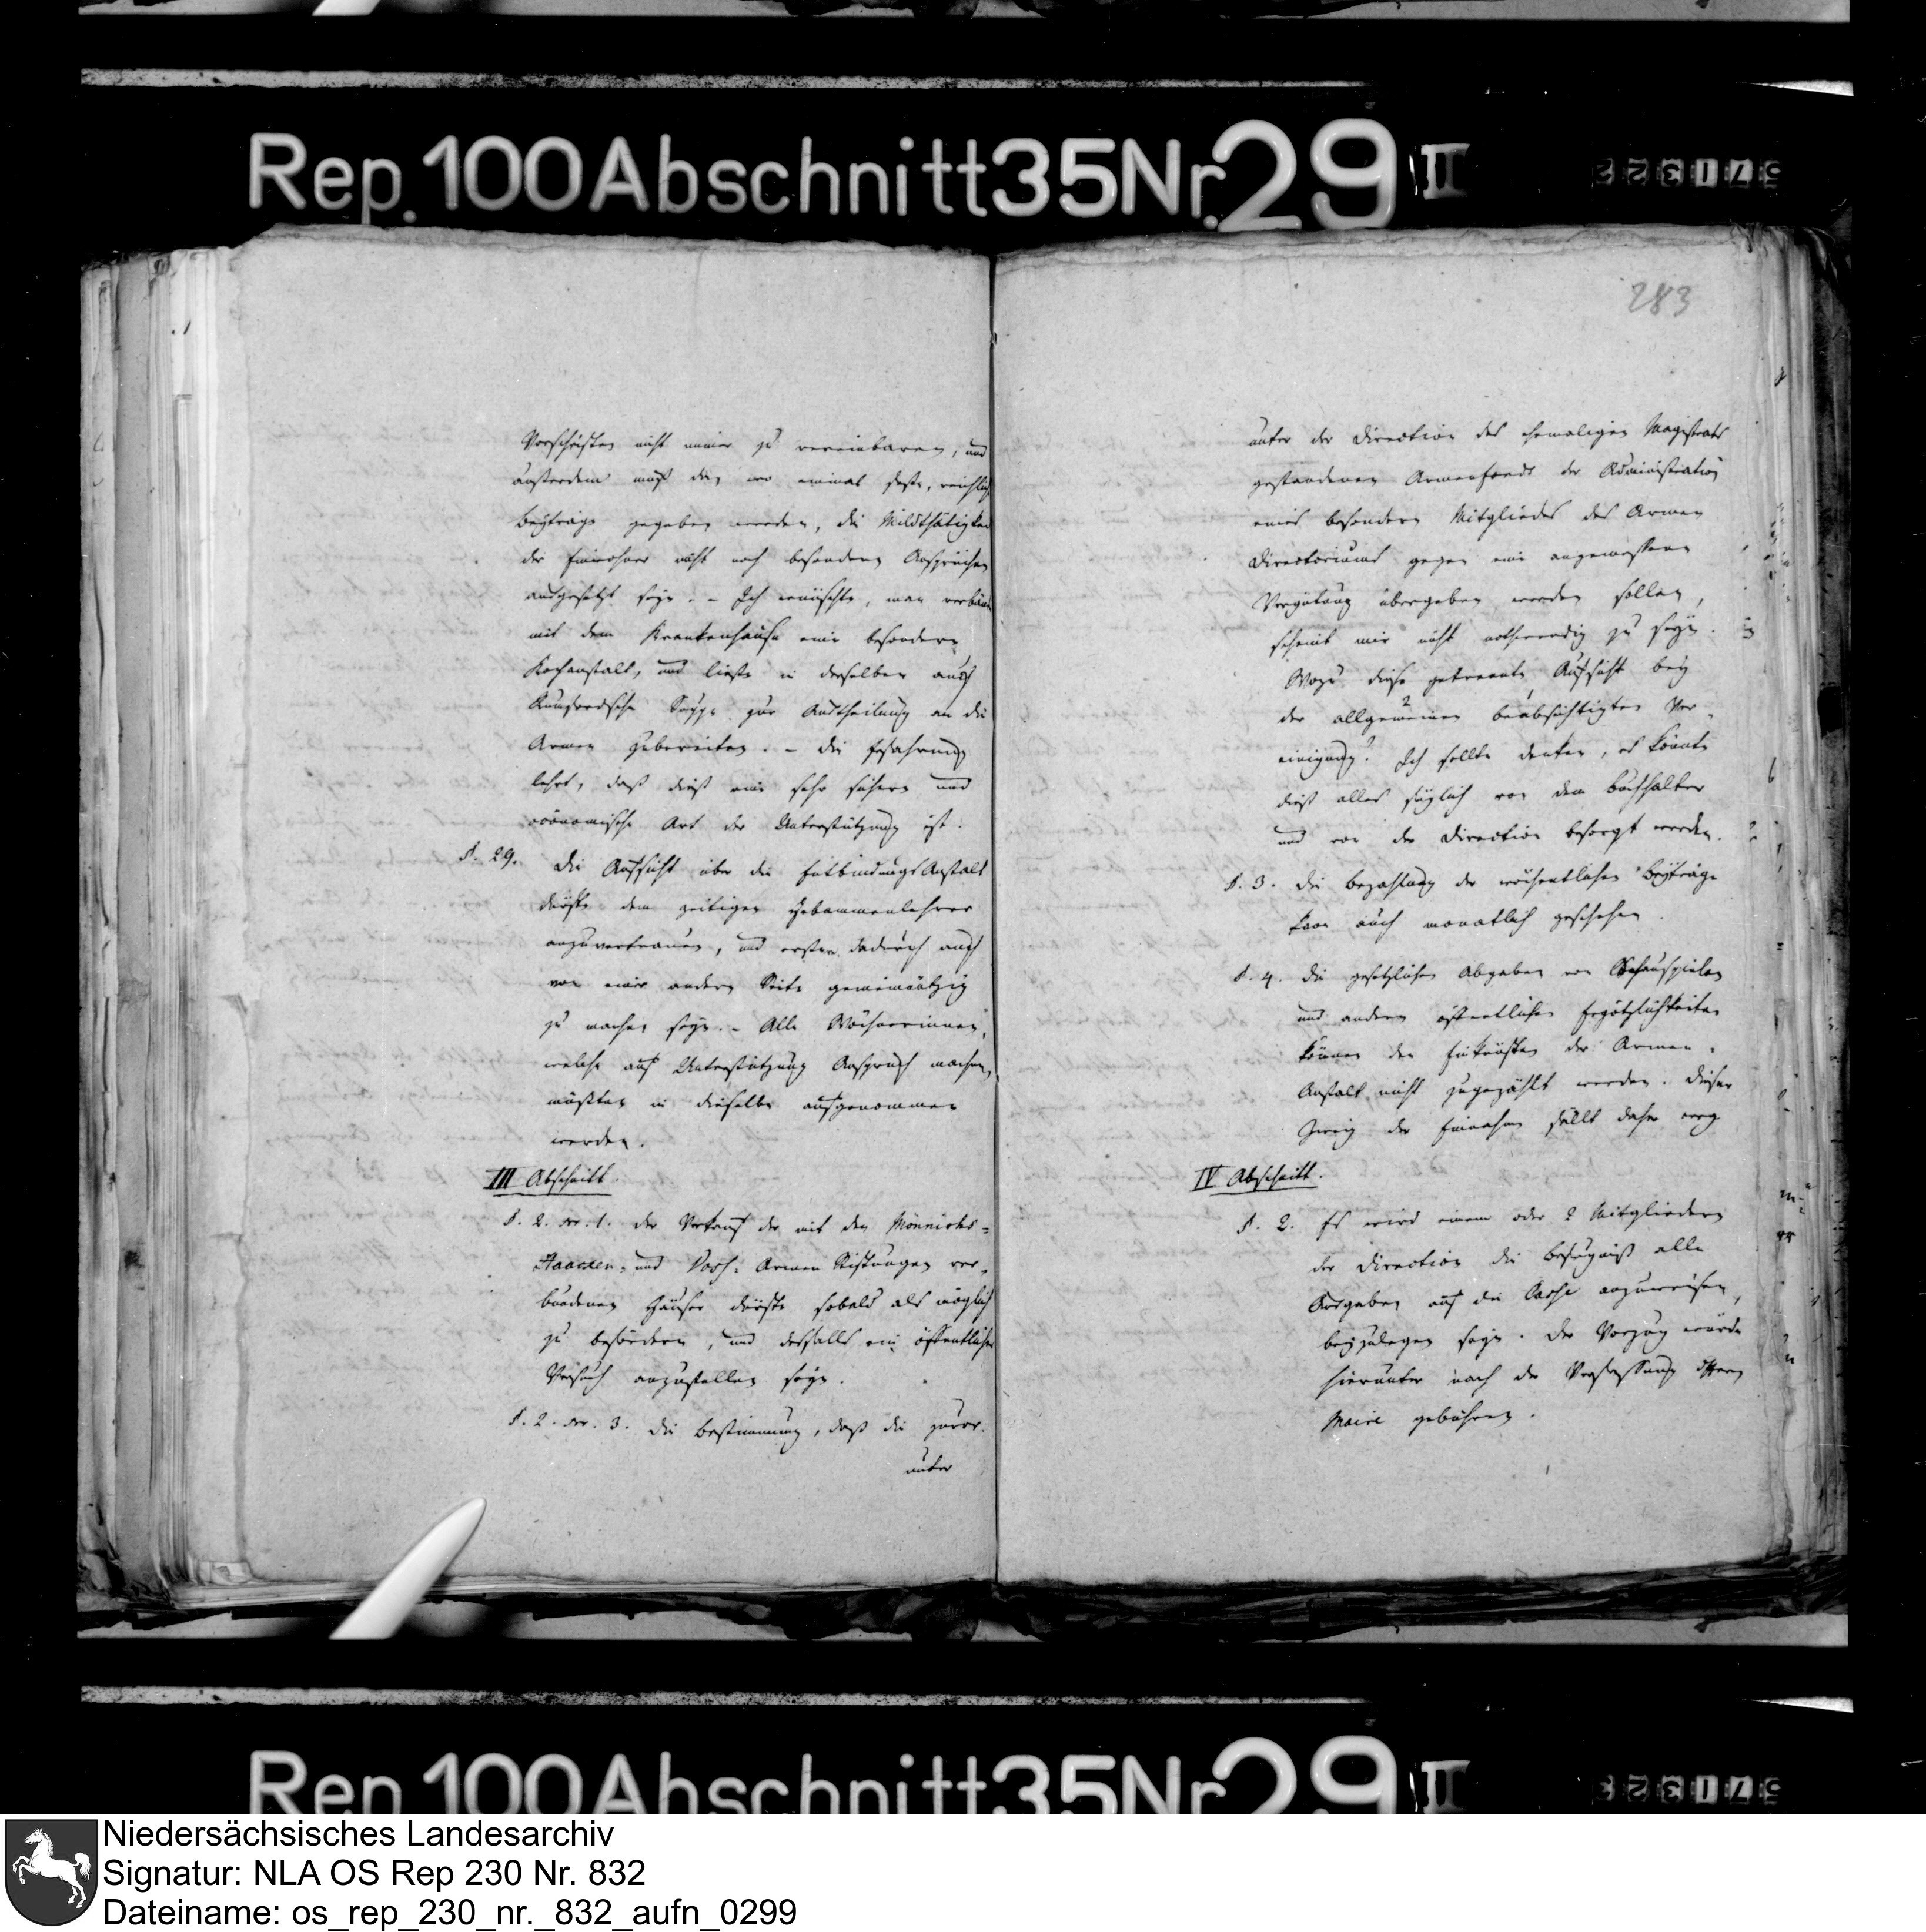 Rep. 100 Abschnitt 35 Nr. 29 II
283
Vorschriften nicht immer zu vereinbaren, und
außerdem muß da, wo einmal feste, reichliche
Beyträge gegeben werden, die Mildthätigkeit
der Einwohner nicht noch besondern Ansprüchen
ausgesetzt seyn. – Ich wünschte, man verbände
mit dem Krankenhause eine besondere
Kochanstalt, und ließe in derselben auch
Rumfordsche Suppe zur Austheilung an die
Armen zubereiten. – Die Erfahrung
lehrt, daß dieß eine sehr sichere und
oeconomische Art der Unterstützung ist.
§. 29. Die Aufsicht über die EntbindungsAnstalt
dürfte dem zeitigen Hebammenlehrer
anzuvertrauen, und erstere dadurch auch
von einer andern Seite gemeinnützig
zu machen seyn. – Alle Wöchnerinnen,
welche auf Unterstützung Anspruch machen,
müßten in dieselbe aufgenommen
werden.
III Abschnitt.
§. 2. nr. 1. Der Verkauf der mit den Mönnichs-
Haacken- und Armen Stiftungen ver-
bundenen Häuser dürfte sobald als möglich
zu befördern, und desfalls ein öffentlicher
Versuch anzustellen seyn.
§. 2. nr. 3. Die Bestimmung, daß die zuvor
unter
unter der Direction des ehemaligen Magistrats
gestandenen Armenfonds der Administration
eines besondern Mitgliedes des Armen
Directoriums gegen eine angemessene
Vergütung übergeben werden sollen,
scheint mir nicht nothwendig zu seyn.
Wozu diese getrennte Aufsicht bey
der allgemeinen beabsichtigten Ver-
einigung? Ich sollte denken, es könnte
dieß alles füglich von dem Buchhalter
und von der Direction besorgt werden.
§. 3. Die Bezahlung der wöchentlichen Beyträge
kann auch monatlich geschehen.
§. 4. Die gesetzlichen Abgaben von Schauspielen
und andern öffentlichen Ergötzlichkeiten
können den Einkünften der Armen-
Anstalt nicht zugezählt werden. Dieser
Zweig der Einnahme fällt daher weg
IV Abschnitt.
§. 2. Es wird einem oder 2 Mitgliedern
der Direction die Befugniß alle
Ausgaben auf die Casse anzuweisen,
beyzulegen seyn. Der Vorzug würde
hierunter nach der Verfassung Herrn
Maire gebühren.
Rep. 100 Abschnitt 35 Nr. 29 II
Niedersächsisches Landesarchiv
Signatur: NLA OS Rep 230 Nr. 832
Dateiname: os_rep_230_nr._832_aufn_0299